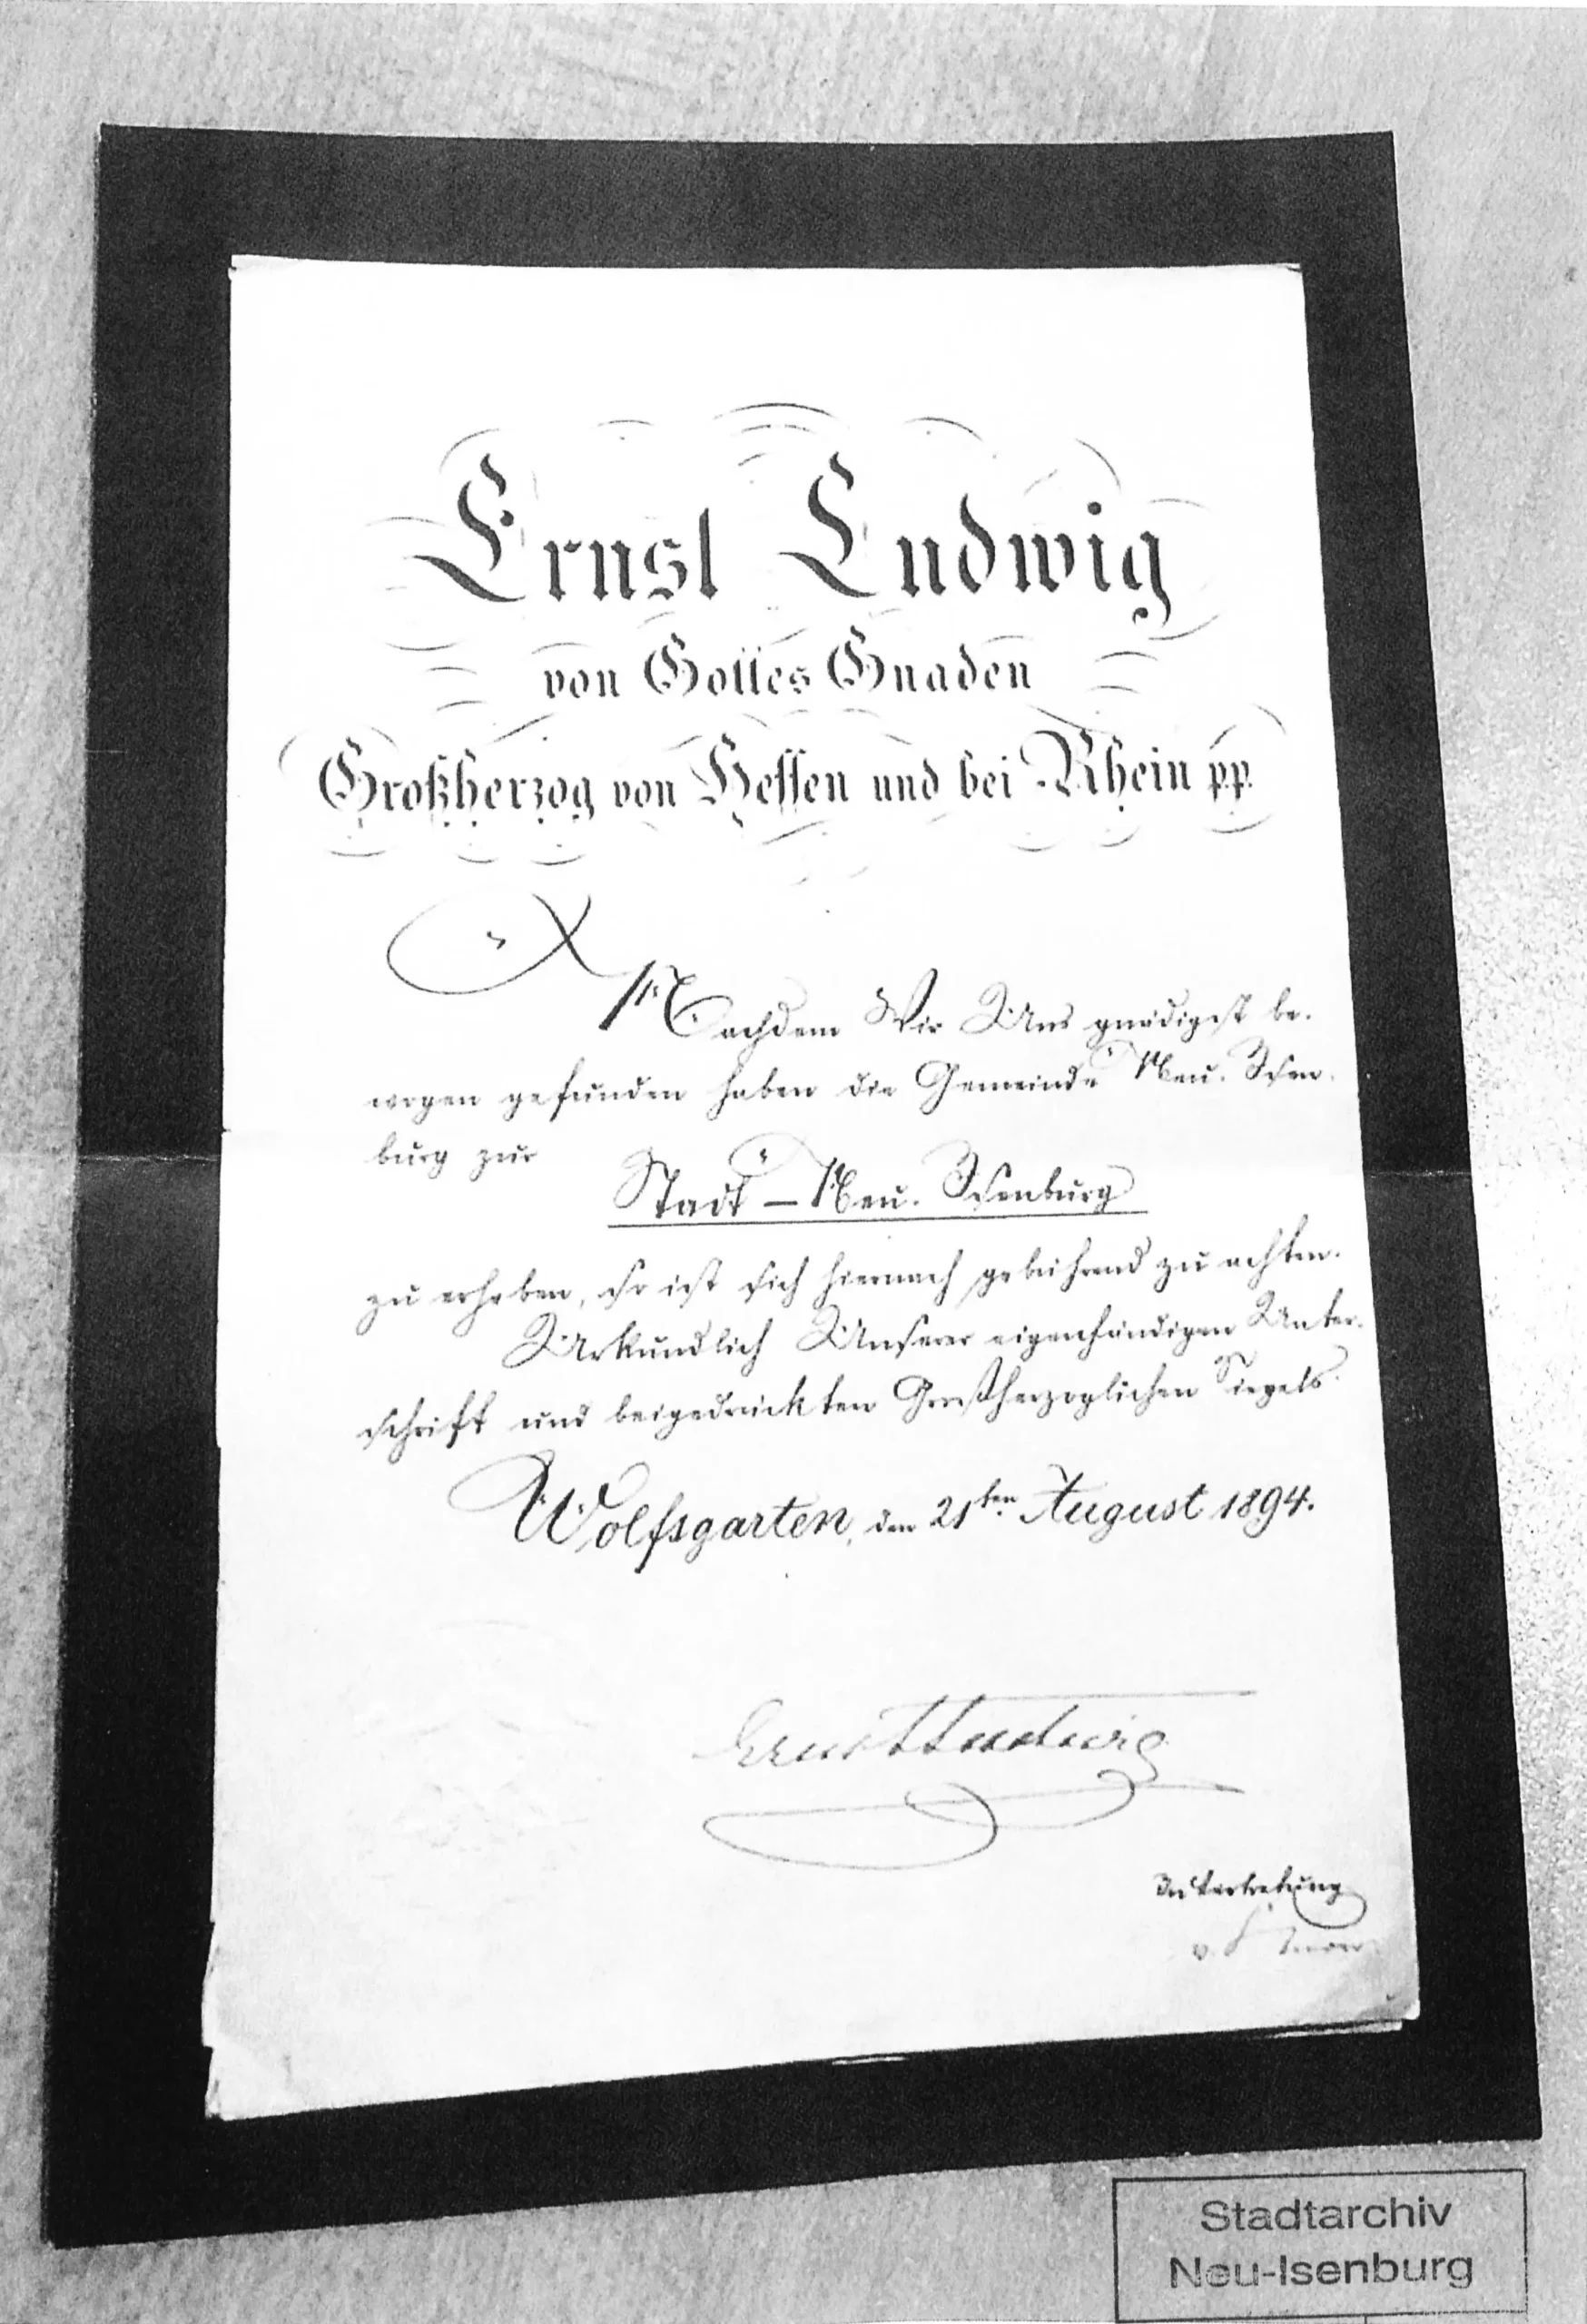 Ernst Ludwig
von Gottes Gnaden
Großherzog von Hessen und bei Rhein p.p.
Nachdem Wir Uns gnädigst be-
wogen gefunden haben die Gemeinde Neu-Isen-
burg zur
Stadt – Neu-Isenburg
zu erheben, so ist sich hiernach gebührend zu achten.
Urkundlich Unserer eigenhändigen Unter-
schrift und beigedrückten Großherzoglichen Siegels.
Wolfsgarten, den 21ten August 1894.
Ernst Ludwig
In Vertretung
v.
Stadtarchiv
Neu-Isenburg